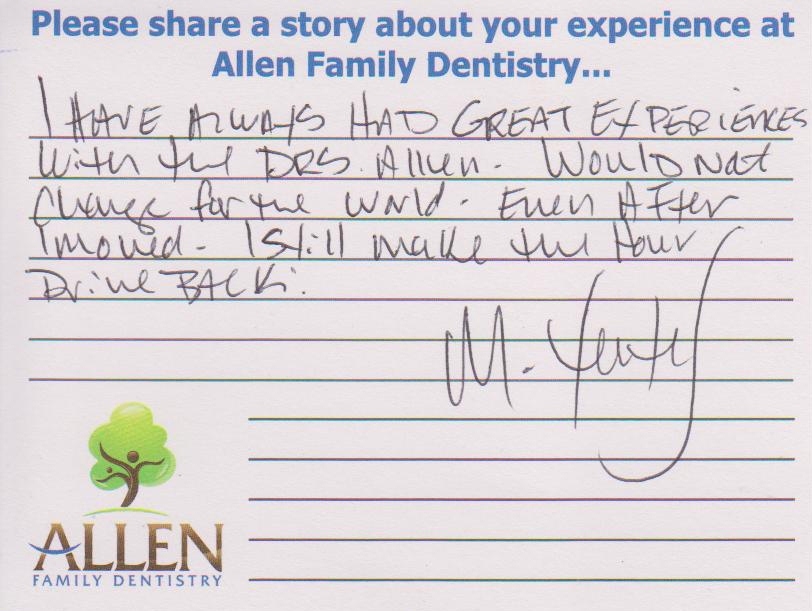 Please share a story about your experience at
Allen Family Dentistry...
I HAVE ALWAYS HAD GREAT EXPERIENCES
With the DRS. Allen. Would Not
Change for the world. Even After
I moved. I still make the hour
Drive BACK.
M.
ALLEN
FAMILY DENTISTRY